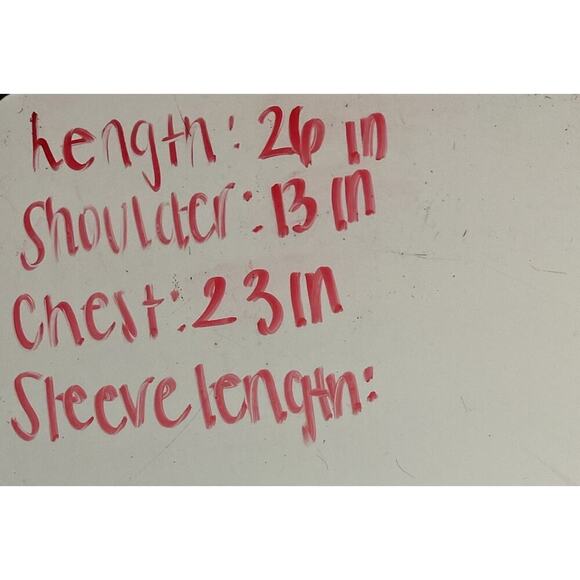 Length: 26 in
Shoulder: 13 in
Chest: 23 in
Sleeve length: